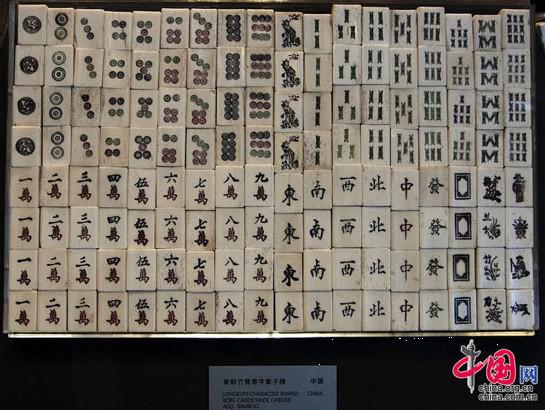 一萬 二萬 三萬 四萬 伍萬 六萬 七萬 八萬 九萬 東 南 西 北 中 發
一萬 二萬 三萬 四萬 伍萬 六萬 七萬 八萬 九萬 東 南 西 北 中 發
一萬 二萬 三萬 四萬 伍萬 六萬 七萬 八萬 九萬 東 南 西 北 中 發
一萬 二萬 三萬 四萬 伍萬 六萬 七萬 八萬 九萬 東 南 西 北 中 發
骨制竹背寿字索子牌 中国
LONGEVITY-CHARACTER SHAPED CHINA
ROPE CARDS MADE OFBONE
AND BAMBOO
中国网
china.org.cn